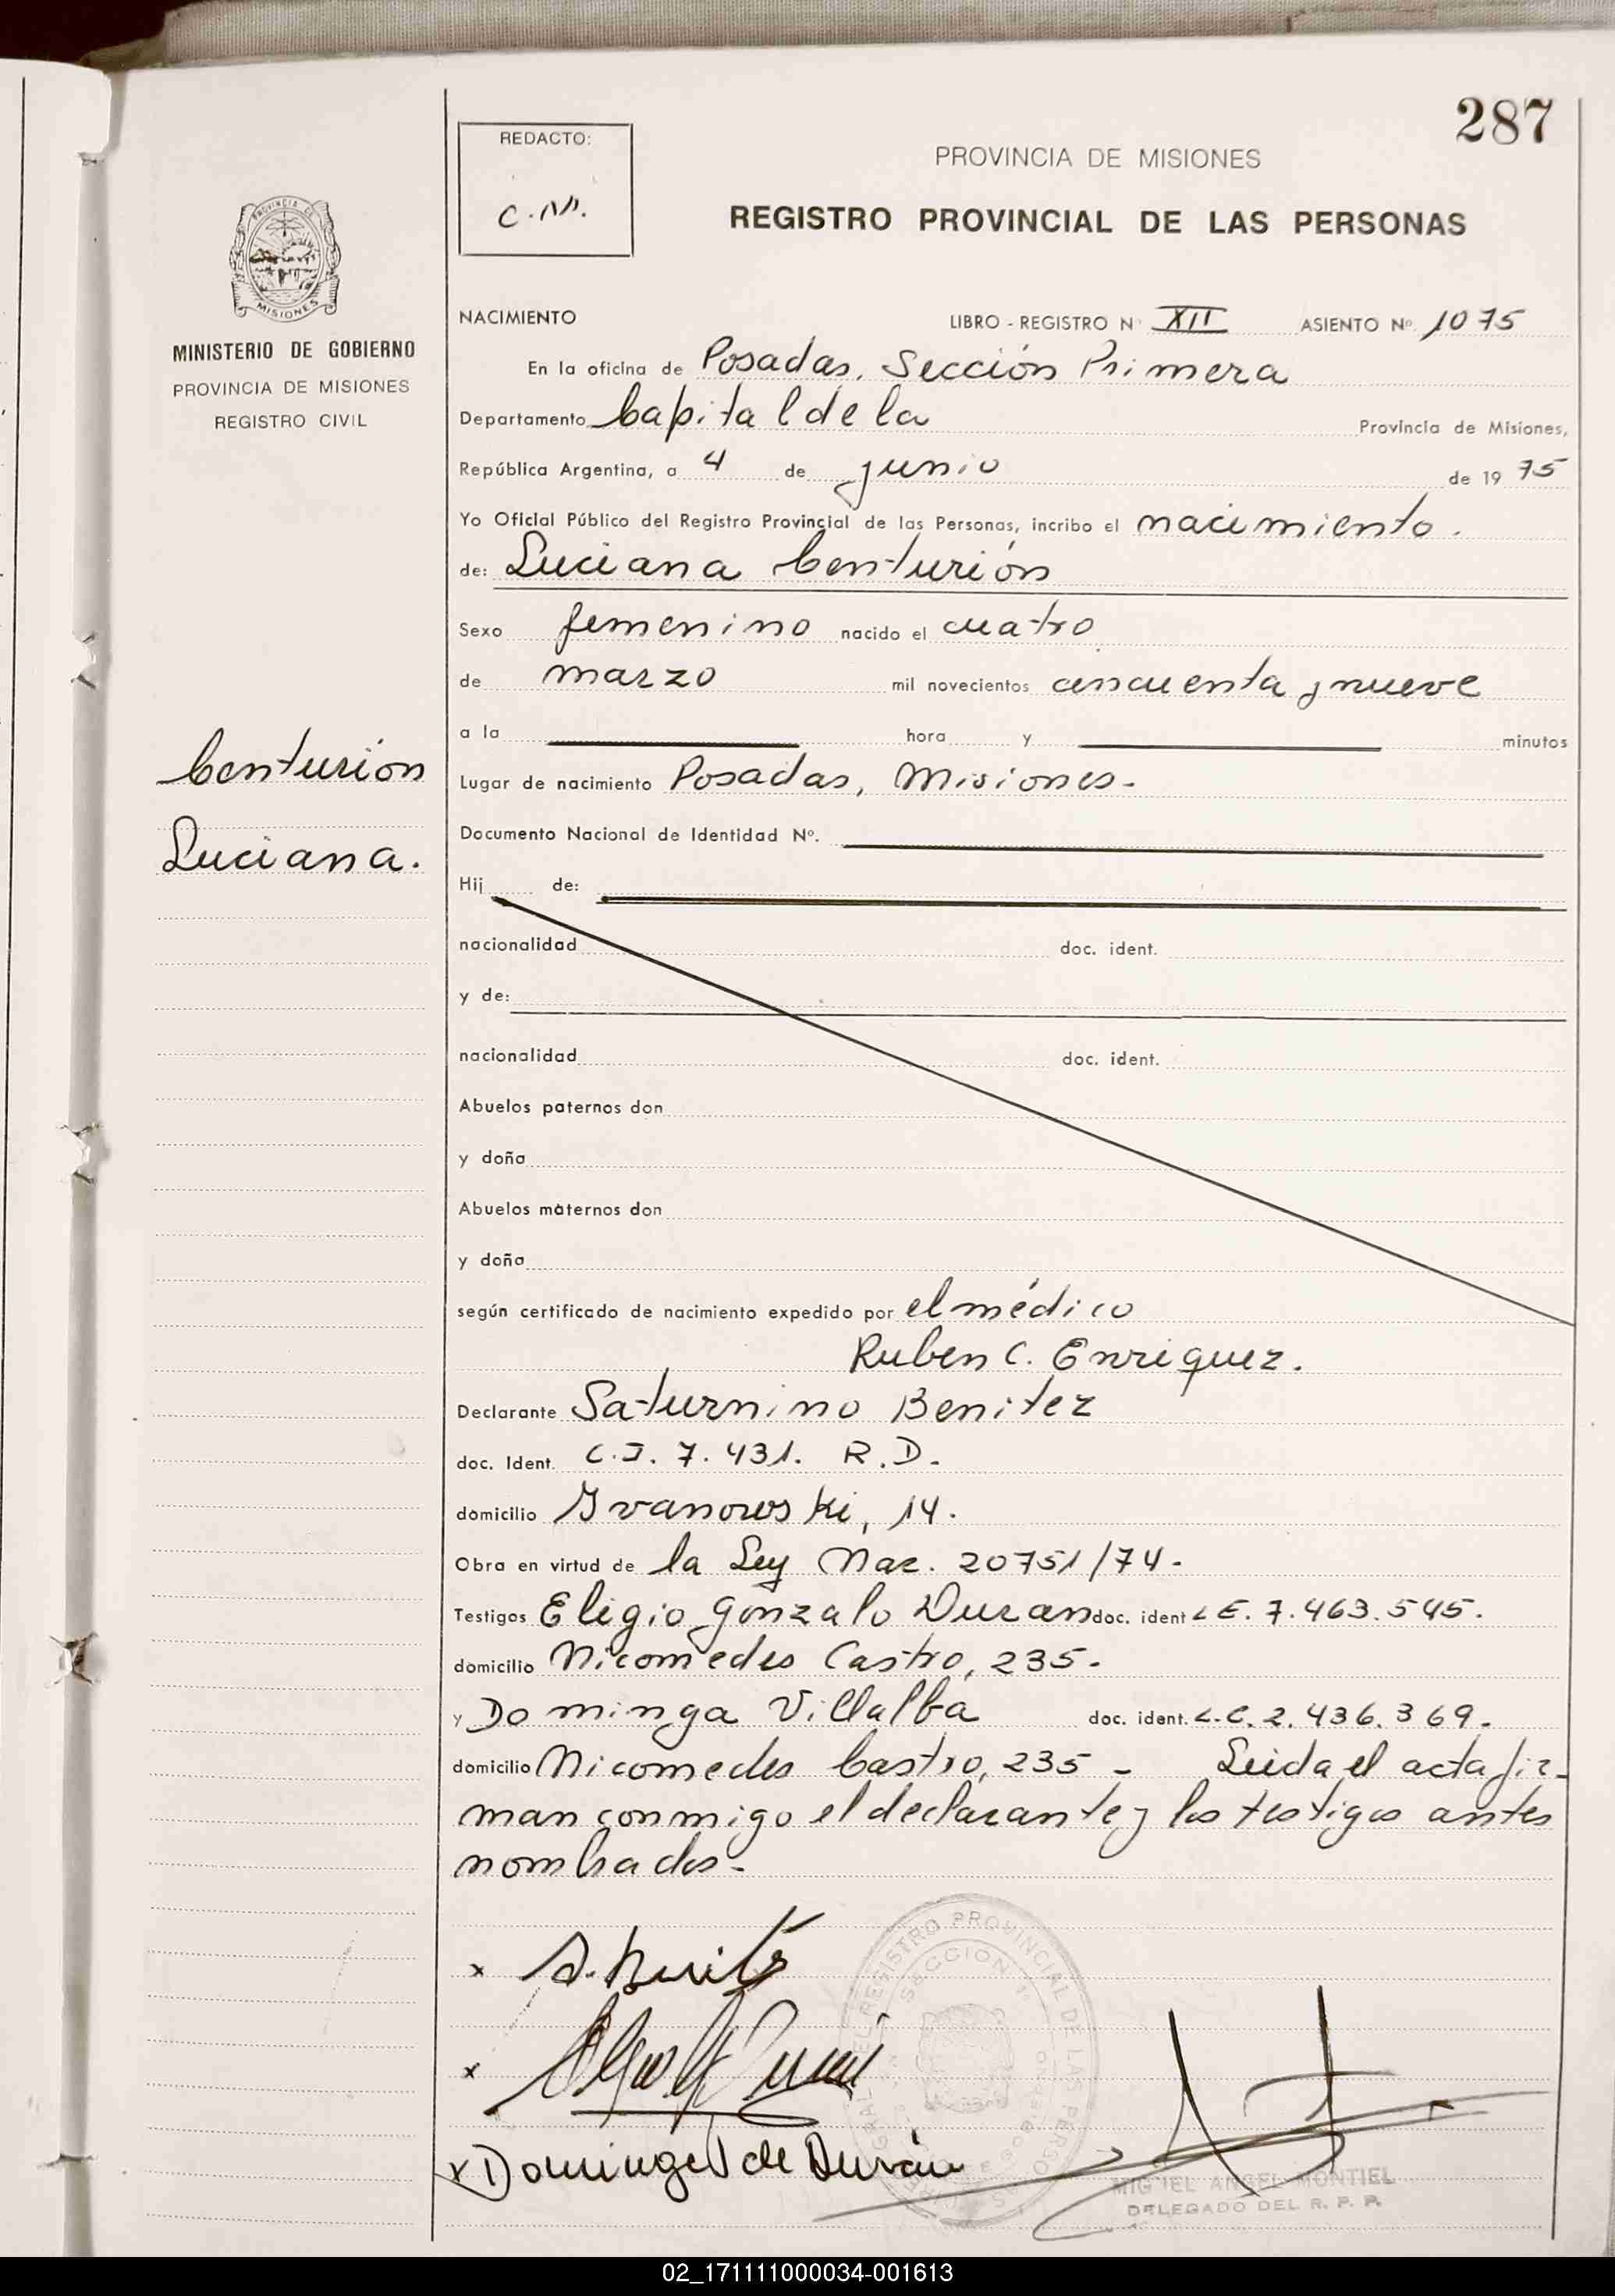 287
REDACTO:
C.M.
PROVINCIA DE MISIONES
REGISTRO PROVINCIAL DE LAS PERSONAS
PROVINCIA DE
MISIONES
MINISTERIO DE GOBIERNO
PROVINCIA DE MISIONES
REGISTRO CIVIL
NACIMIENTO LIBRO - REGISTRO Nº XII ASIENTO Nº 1075
En la oficina de Posadas, Sección Primera
Departamento Capital de la Provincia de Misiones,
República Argentina, a 4 de junio de 19 75
Yo Oficial Público del Registro Provincial de las Personas, incribo el nacimiento.
de: Luciana Centurión
Sexo femenino nacido el cuatro
de marzo mil novecientos cincuenta y nueve
a la hora y minutos
Centurión
Luciana.
Lugar de nacimiento Posadas, Misiones-
Documento Nacional de Identidad Nº.
Hij de:
nacionalidad doc. ident.
y de:
nacionalidad doc. ident.
Abuelos paternos don
y doña
Abuelos maternos don
y doña
según certificado de nacimiento expedido por el médico
Ruben C. Enriquez.
Declarante Saturnino Benitez
doc. Ident. C.I. 7.431. R.D.
domicilio Ivanowski, 14.
Obra en virtud de la Ley Nac. 20751/74-
Testigos Eligio Gonzalo Duran doc. ident L.E. 7.463.545.
domicilio Nicomedes Castro, 235-
y Dominga Villalba doc. ident. L.C. 2.436.369-
domicilio Nicomedes Castro, 235 - Leida el acta fir-
man conmigo el declarante y los testigos antes
nombrados-
x S. Benitez
x
x Dominga V de Durán
REGISTRO PROVINCIAL DE LAS PERSONAS
SECCION 1ª
MIGUEL ANGEL MONTIEL
DELEGADO DEL R. P. P.
02_171111000034-001613